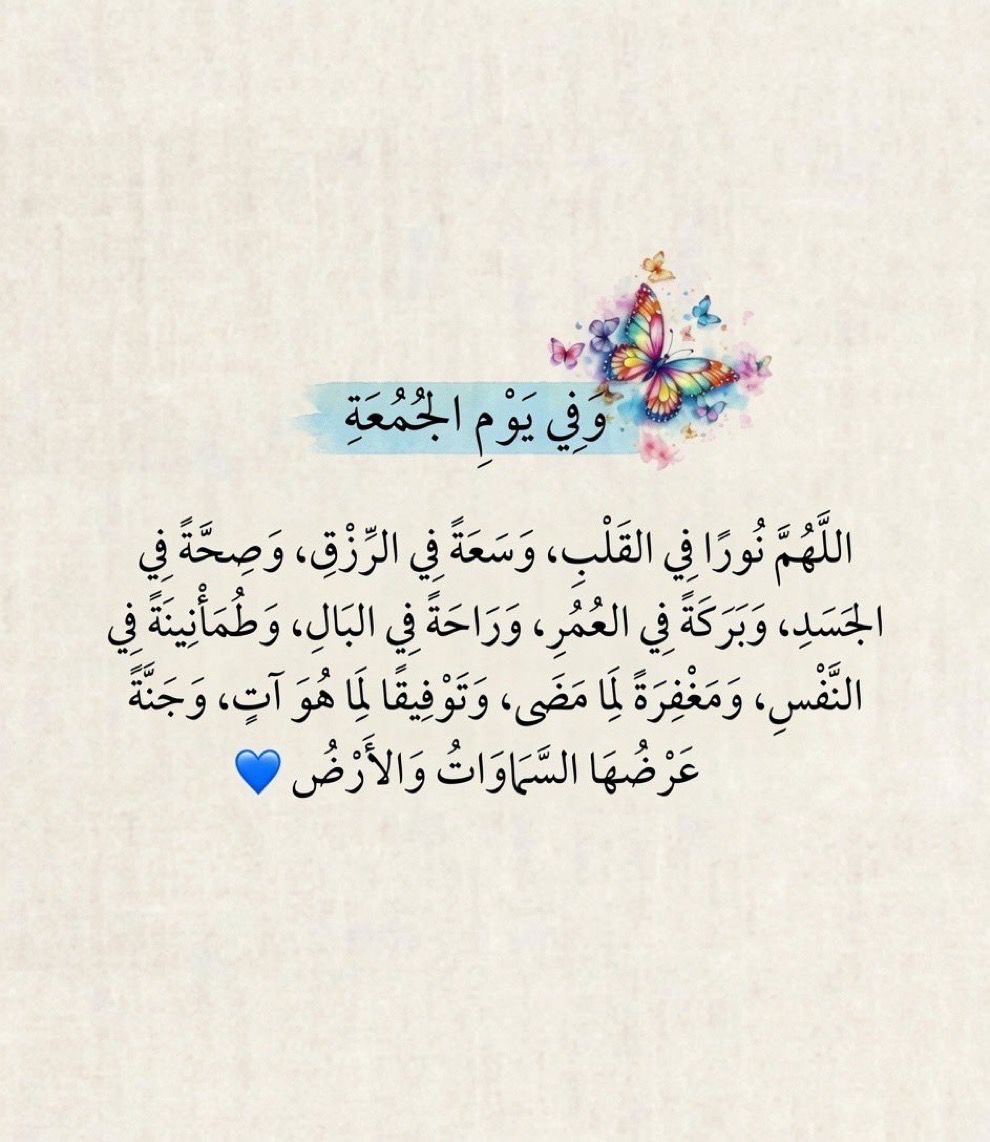 وَفِي يَوْمِ الجُمُعَةِ
اللَّهُمَّ نُورًا فِي القَلْبِ، وَسَعَةً فِي الرِّزْقِ، وَصِحَّةً فِي
الجَسَدِ، وَبَرَكَةً فِي العُمُرِ، وَرَاحَةً فِي البَالِ، وَطُمَأْنِينَةً فِي
النَّفْسِ، وَمَغْفِرَةً لِمَا مَضَى، وَتَوْفِيقًا لِمَا هُوَ آتٍ، وَجَنَّةً
عَرْضُهَا السَّمَاوَاتُ وَالأَرْضُ 💙